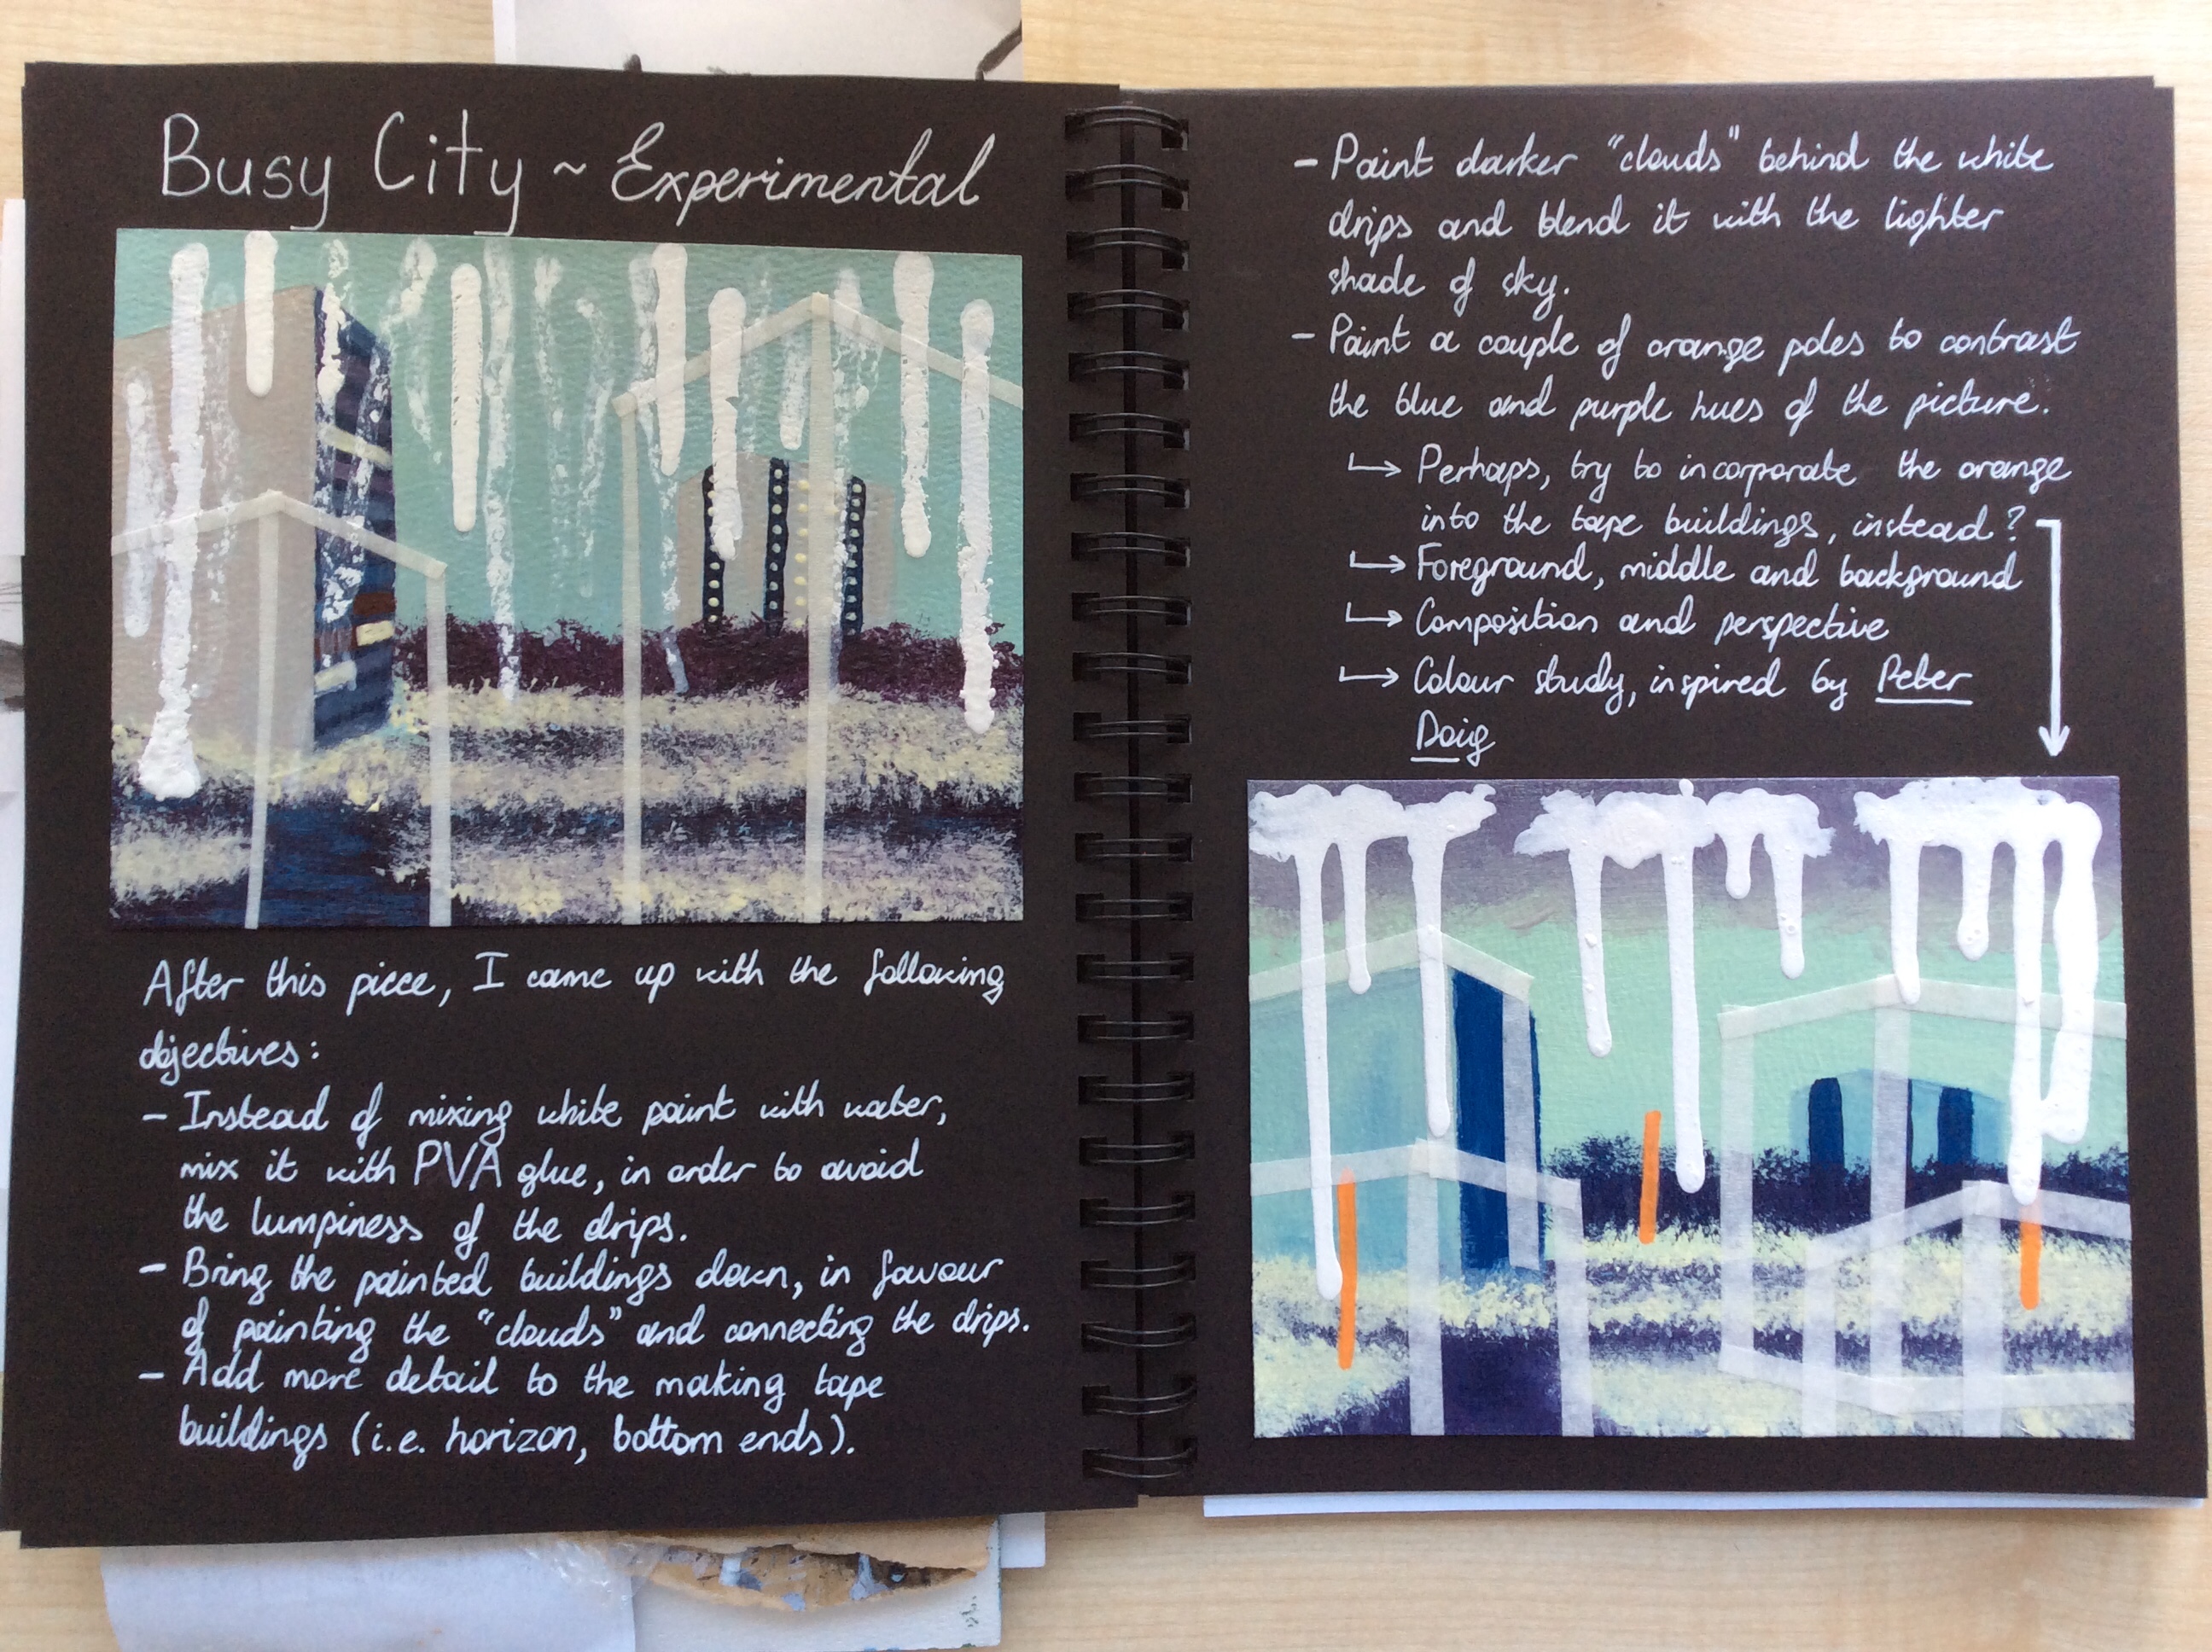 Busy City ~ Experimental
After this piece, I came up with the following
objectives:
- Instead of mixing white paint with water,
mix it with PVA glue, in order to avoid
the lumpiness of the drips.
- Bring the painted buildings down, in favour
of painting the "clouds" and connecting the drips.
- Add more detail to the making tape
buildings (i.e. horizon, bottom ends).
- Paint darker "clouds" behind the white
drips and blend it with the lighter
shade of sky.
- Paint a couple of orange poles to contrast
the blue and purple hues of the picture.
↳ Perhaps, try to incorporate the orange
into the tape buildings, instead?
↳ Foreground, middle and background
↳ Composition and perspective
↳ Colour study, inspired by Peter
Doig